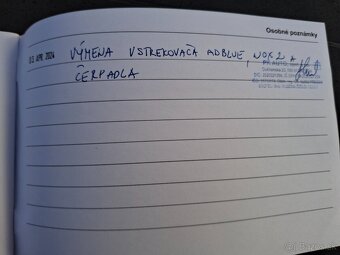 Osobné poznámky
03 APR 2024 VÝMENA VSTREKOVAČA ADBLUE, NOX 2 A
ČERPADLA